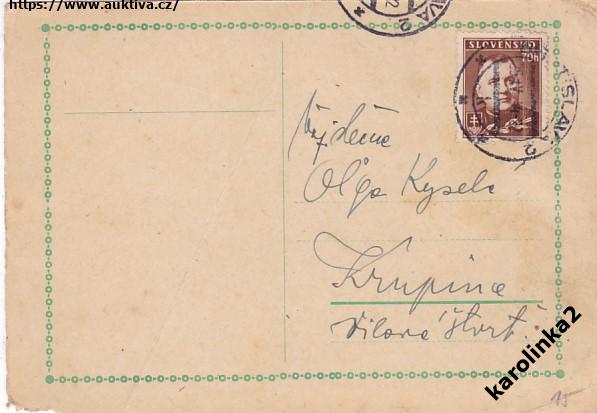 https://www.auktiva.cz/
SLAVA 2
SLOVENSKO
70h
TISLAVA 2
Olga Kysela
Krupina
Vilová štvrť
karolinka2
15